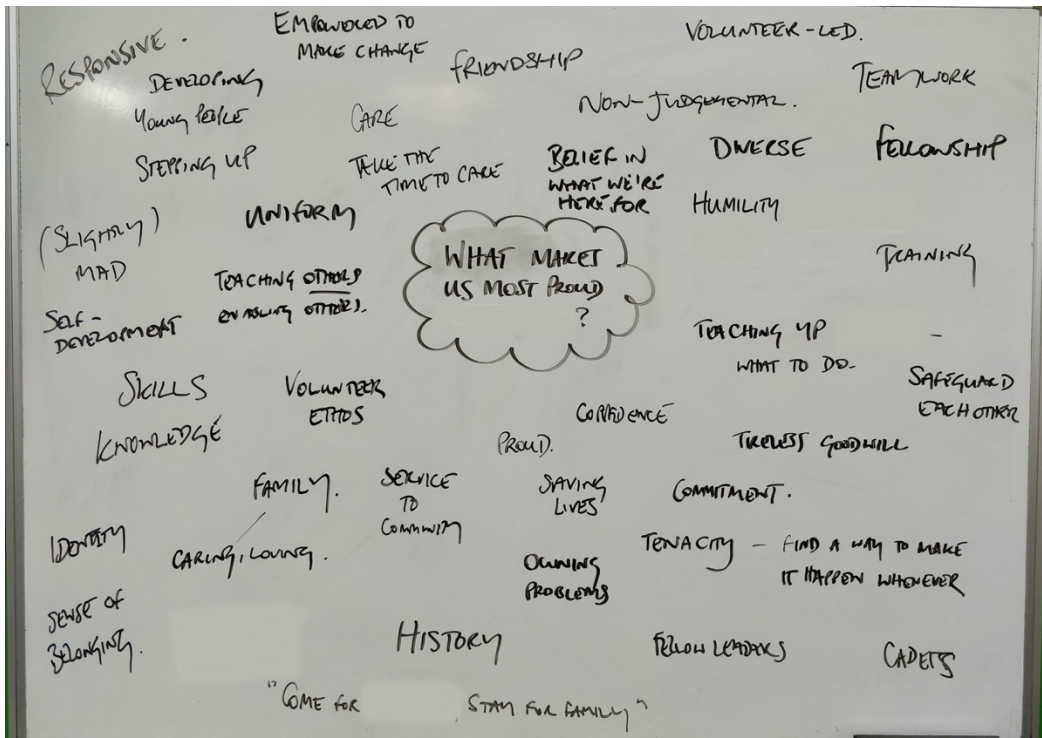 RESPONSIVE.
EMPOWERED TO
MAKE CHANGE
FRIENDSHIP
VOLUNTEER-LED.
TEAMWORK
DEVELOPING
YOUNG PEOPLE
CARE
NON-JUDGEMENTAL.
STEPPING UP
TAKE THE
TIME TO CARE
BELIEF IN
WHAT WE'RE
HERE FOR
DIVERSE
FELLOWSHIP
(SLIGHTLY)
MAD
UNIFORM
HUMILITY
WHAT MAKES
US MOST PROUD
?
TRAINING
TEACHING OTHERS
ENABLING OTHERS.
SELF-
DEVELOPMENT
TEACHING UP
WHAT TO DO.
-
SAFEGUARD
EACH OTHER
SKILLS
VOLUNTEER
ETHOS
CONFIDENCE
KNOWLEDGE
PROUD.
TIRELESS GOODWILL
FAMILY.
SERVICE
TO
COMMUNITY
SAVING
LIVES
COMMITMENT.
IDENTITY
CARING, LOVING.
OWNING
PROBLEMS
TENACITY - FIND A WAY TO MAKE
IT HAPPEN WHENEVER
SENSE OF
BELONGING.
HISTORY
FELLOW LEADERS
CADETS
"COME FOR STAY FOR FAMILY"